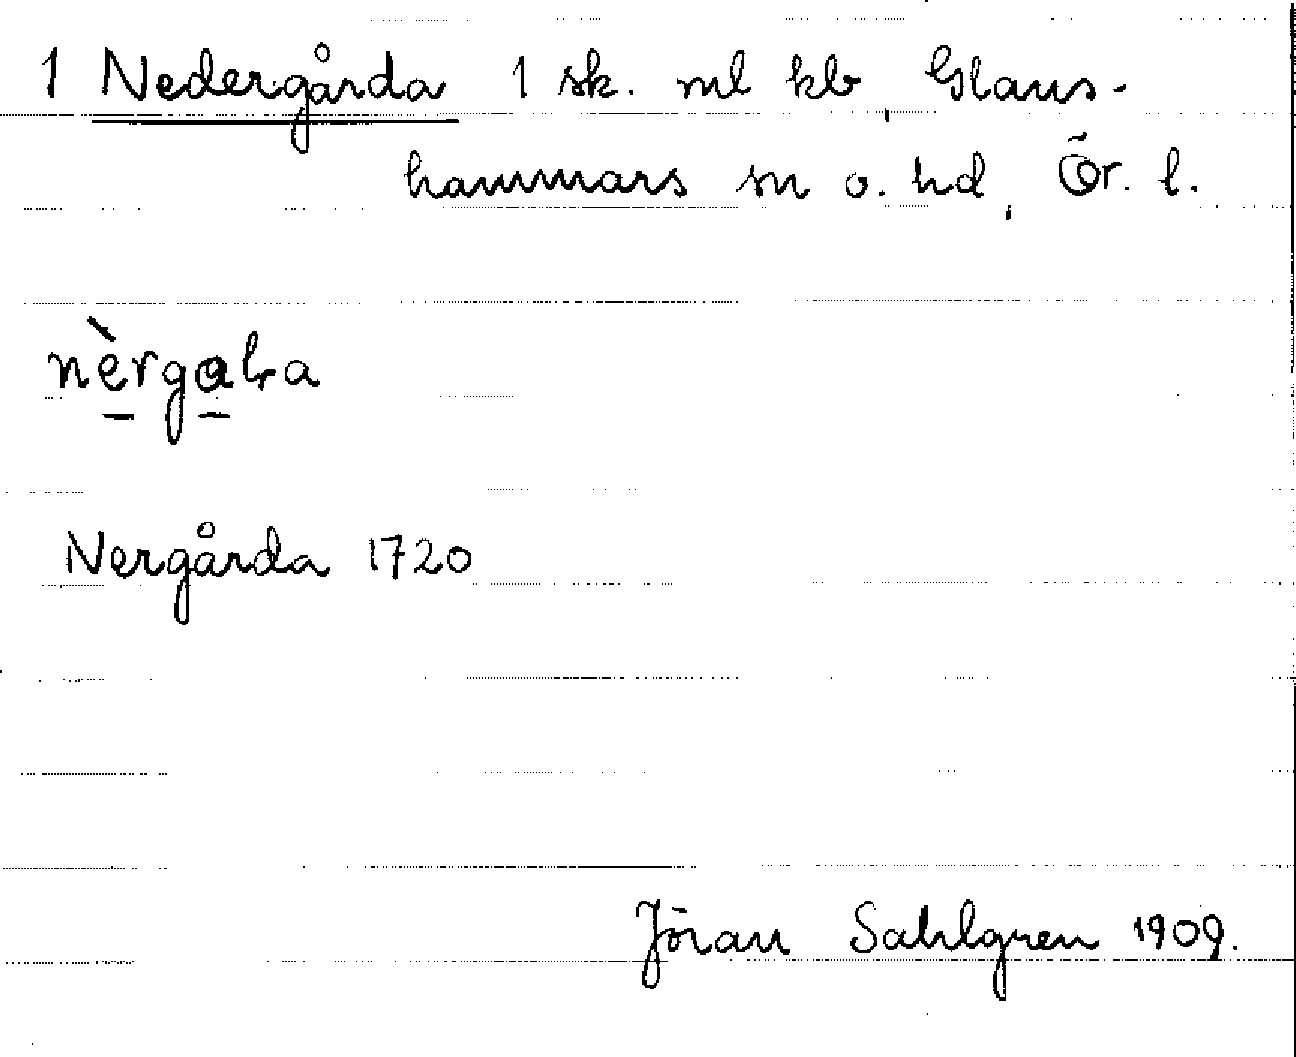 1 Nedergårda 1 sk. ml kb, Glans-
hammars sn o. hd, Ör. l.
nèrgaɫa
Nergårda 1720
Jöran Sahlgren 1909.